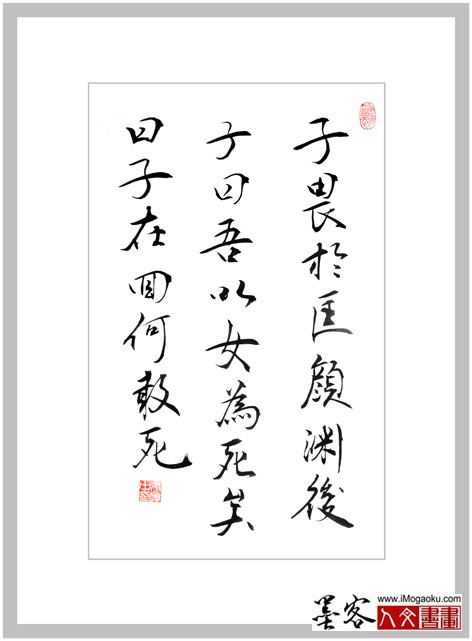 子畏於匡顏淵後
子曰吾以女為死矣
曰子在回何敢死
www.iMogaoku.com
墨客人文書畫